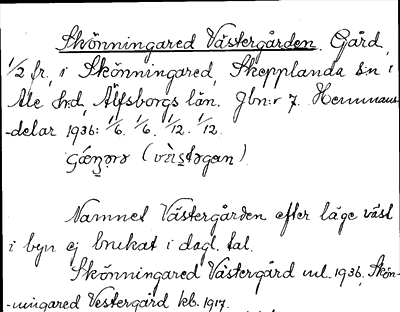 Skönningared Västergården. Gård,
1/2 fr, i Skönningared, Skepplanda sn i
Ale hd, Älfsborgs län. Jbn:r 7. Hemmans-
-delar 1936: 1/6. 1/6. 1/12. 1/12.
Namnet Västergården efter läge väst
i byn ej brukat i dagl. tal.
Skönningared Västergård ml. 1936, Skön-
-ningared Vestergård kb. 1917.